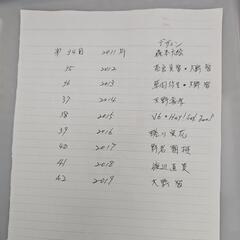 デザイン
第34回 2011年 森本千絵
35 2012 奈良美智・大野智
36 2013 草間弥生・大野智
37 2014 大野
38 2015 V6・Hey! Say! JUMP
39 2016 蜷川実花
40 2017
41 2018 渡辺直美
42 2019 大野智